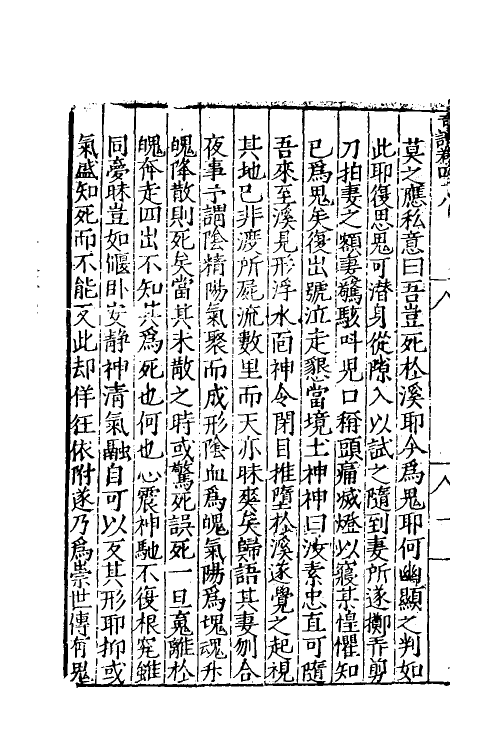 莫之應私意曰吾豈死於溪耶今為鬼耶何幽顯之判如
此耶復思鬼可潜身從隙入以試之隨到妻所遂擲弄剪
刀拍妻之額妻驚駭呌兒口稱頭痛滅燈以寢某惶懼知
已為鬼矣復出號泣走懇當境土神神曰汝素忠直可隨
吾來至溪見形浮水面神令閉目推墮於溪遂覺之起視
其地已非渡所屍流數里而天亦昧爽矣歸語其妻刎合
夜事予謂陰精陽氣聚而成形陰血為魄氣陽為塊魂升
魄降散則死矣當其未散之時或驚死誤死一旦䰟離於
魄奔走四出不知其為死也何也心震神馳不復根究雖
同夢昧豈如偃卧安靜神清氣融自可以反其形耶抑或
氣盛知死而不能反此却佯狂依附遂乃為祟世傳有鬼